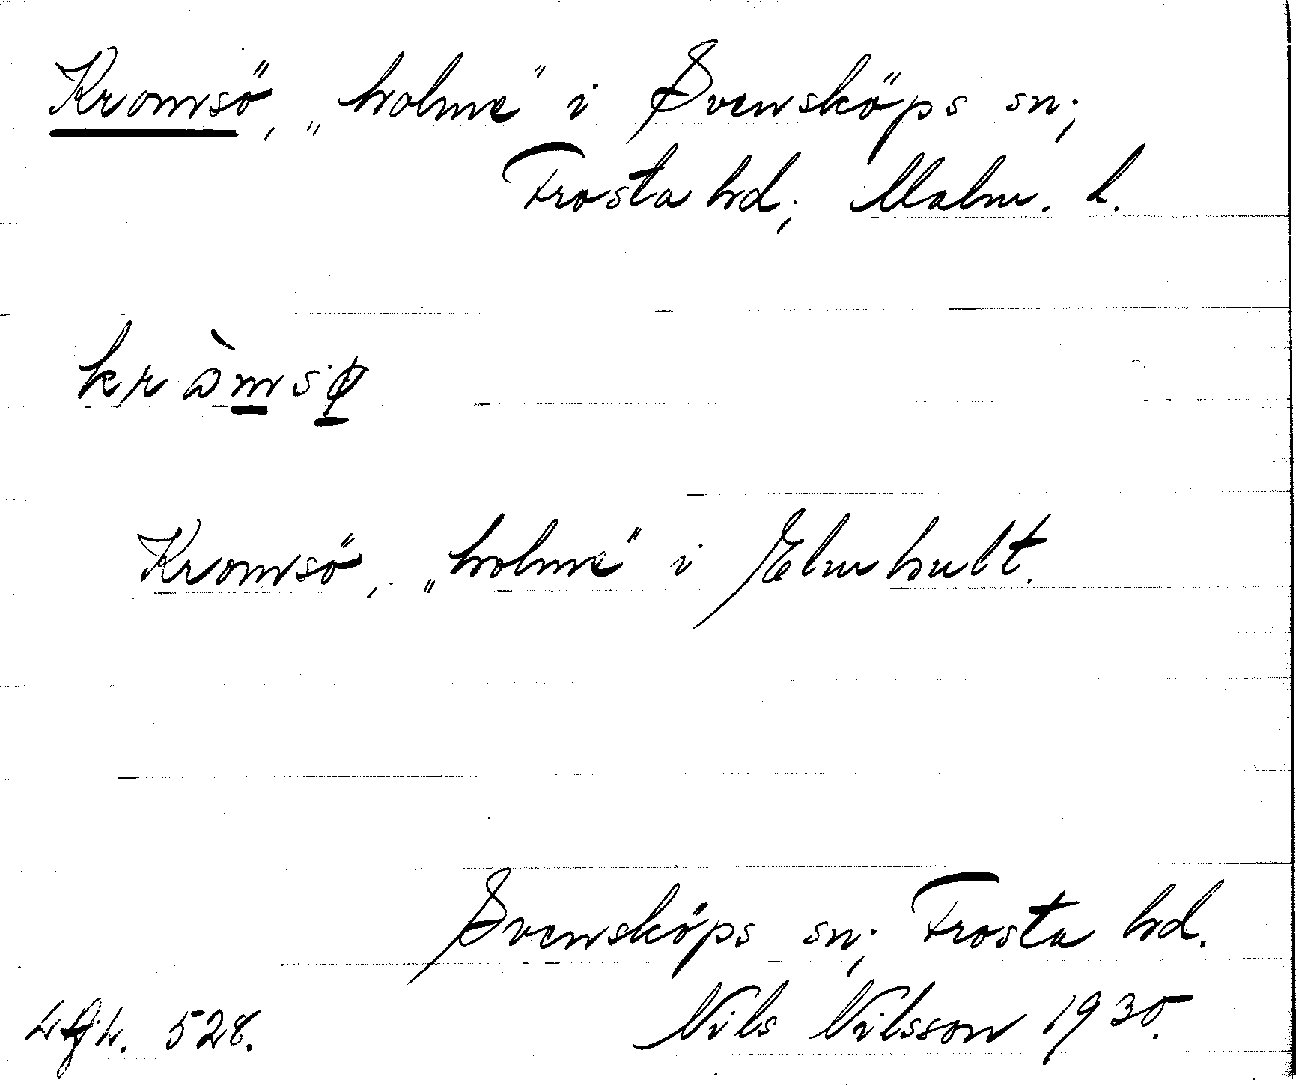 Kromsö, „holme" i Svensköps sn;
Frosta hd; Malm. l.
kròmsø
Kromsö, „holme" i Elmhult.
Svensköps sn; Frosta hd.
528. Nils Nilsson 1930.